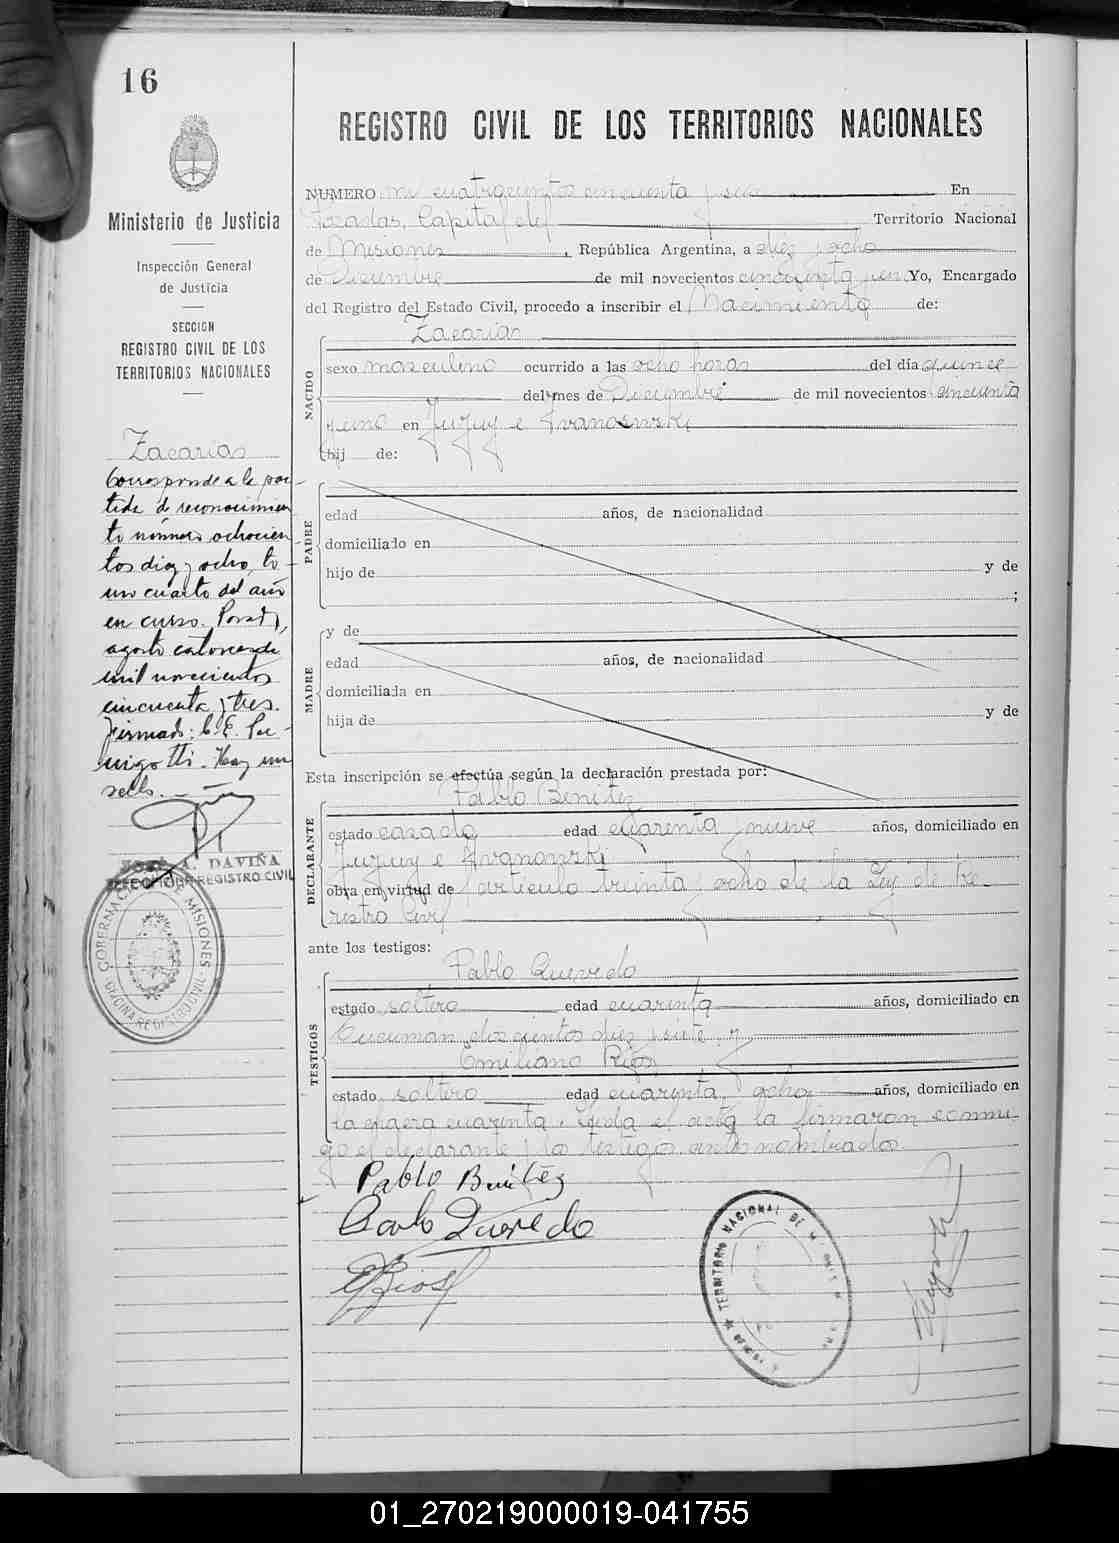 16
REGISTRO CIVIL DE LOS TERRITORIOS NACIONALES
Ministerio de Justicia
Inspección General
de Justicia
SECCION
REGISTRO CIVIL DE LOS
TERRITORIOS NACIONALES
NUMERO mil cuatrocientos cincuenta y seis En
Posadas, Capital del Territorio Nacional
de Misiones, República Argentina, a diez y ocho
de Diciembre de mil novecientos cincuenta y uno Yo, Encargado
del Registro del Estado Civil, procedo a inscribir el Nacimiento de:
NACIDO
Zacarias
sexo masculino ocurrido a las ocho horas del día quince
del mes de Diciembre de mil novecientos cincuenta
y uno en Jujuy e Ivanowski
hij de:
PADRE
edad años, de nacionalidad
domiciliado en
hijo de y de
;
MADRE
y de
edad años, de nacionalidad
domiciliada en
hija de y de
Esta inscripción se efectúa según la declaración prestada por:
DECLARANTE
Pablo Benitez
estado casado edad cuarenta y nueve años, domiciliado en
Jujuy e Ivanowski
obra en virtud de artículo treinta y ocho de la Ley de Re-
gistro Civil
ante los testigos:
TESTIGOS
Pablo Quevedo
estado soltero edad cuarenta años, domiciliado en
Tucuman doscientos diez y siete y
Emiliano Rios
estado soltero edad cuarenta y ocho años, domiciliado en
cuarenta. Leida el acta la firmaron conmi-
go el declarante y los testigos antes nombrados
Pablo Benitez
Quevedo
ERios
Zacarias
Corresponde a la par-
tida de reconocimien
to número ochocien
tos diez y ocho, to-
mo cuarto del año
en curso. Posadas,
agosto catorce de
mil novecientos
cincuenta y tres.
Firmado: C. E.
Hay un
sello.
JOSÉ A. DAVIÑA
REGISTRO CIVIL
GOBERNACION MISIONES
OFICINA REGISTRO CIVIL
TERRITORIO NACIONAL DE MISIONES
01_270219000019-041755